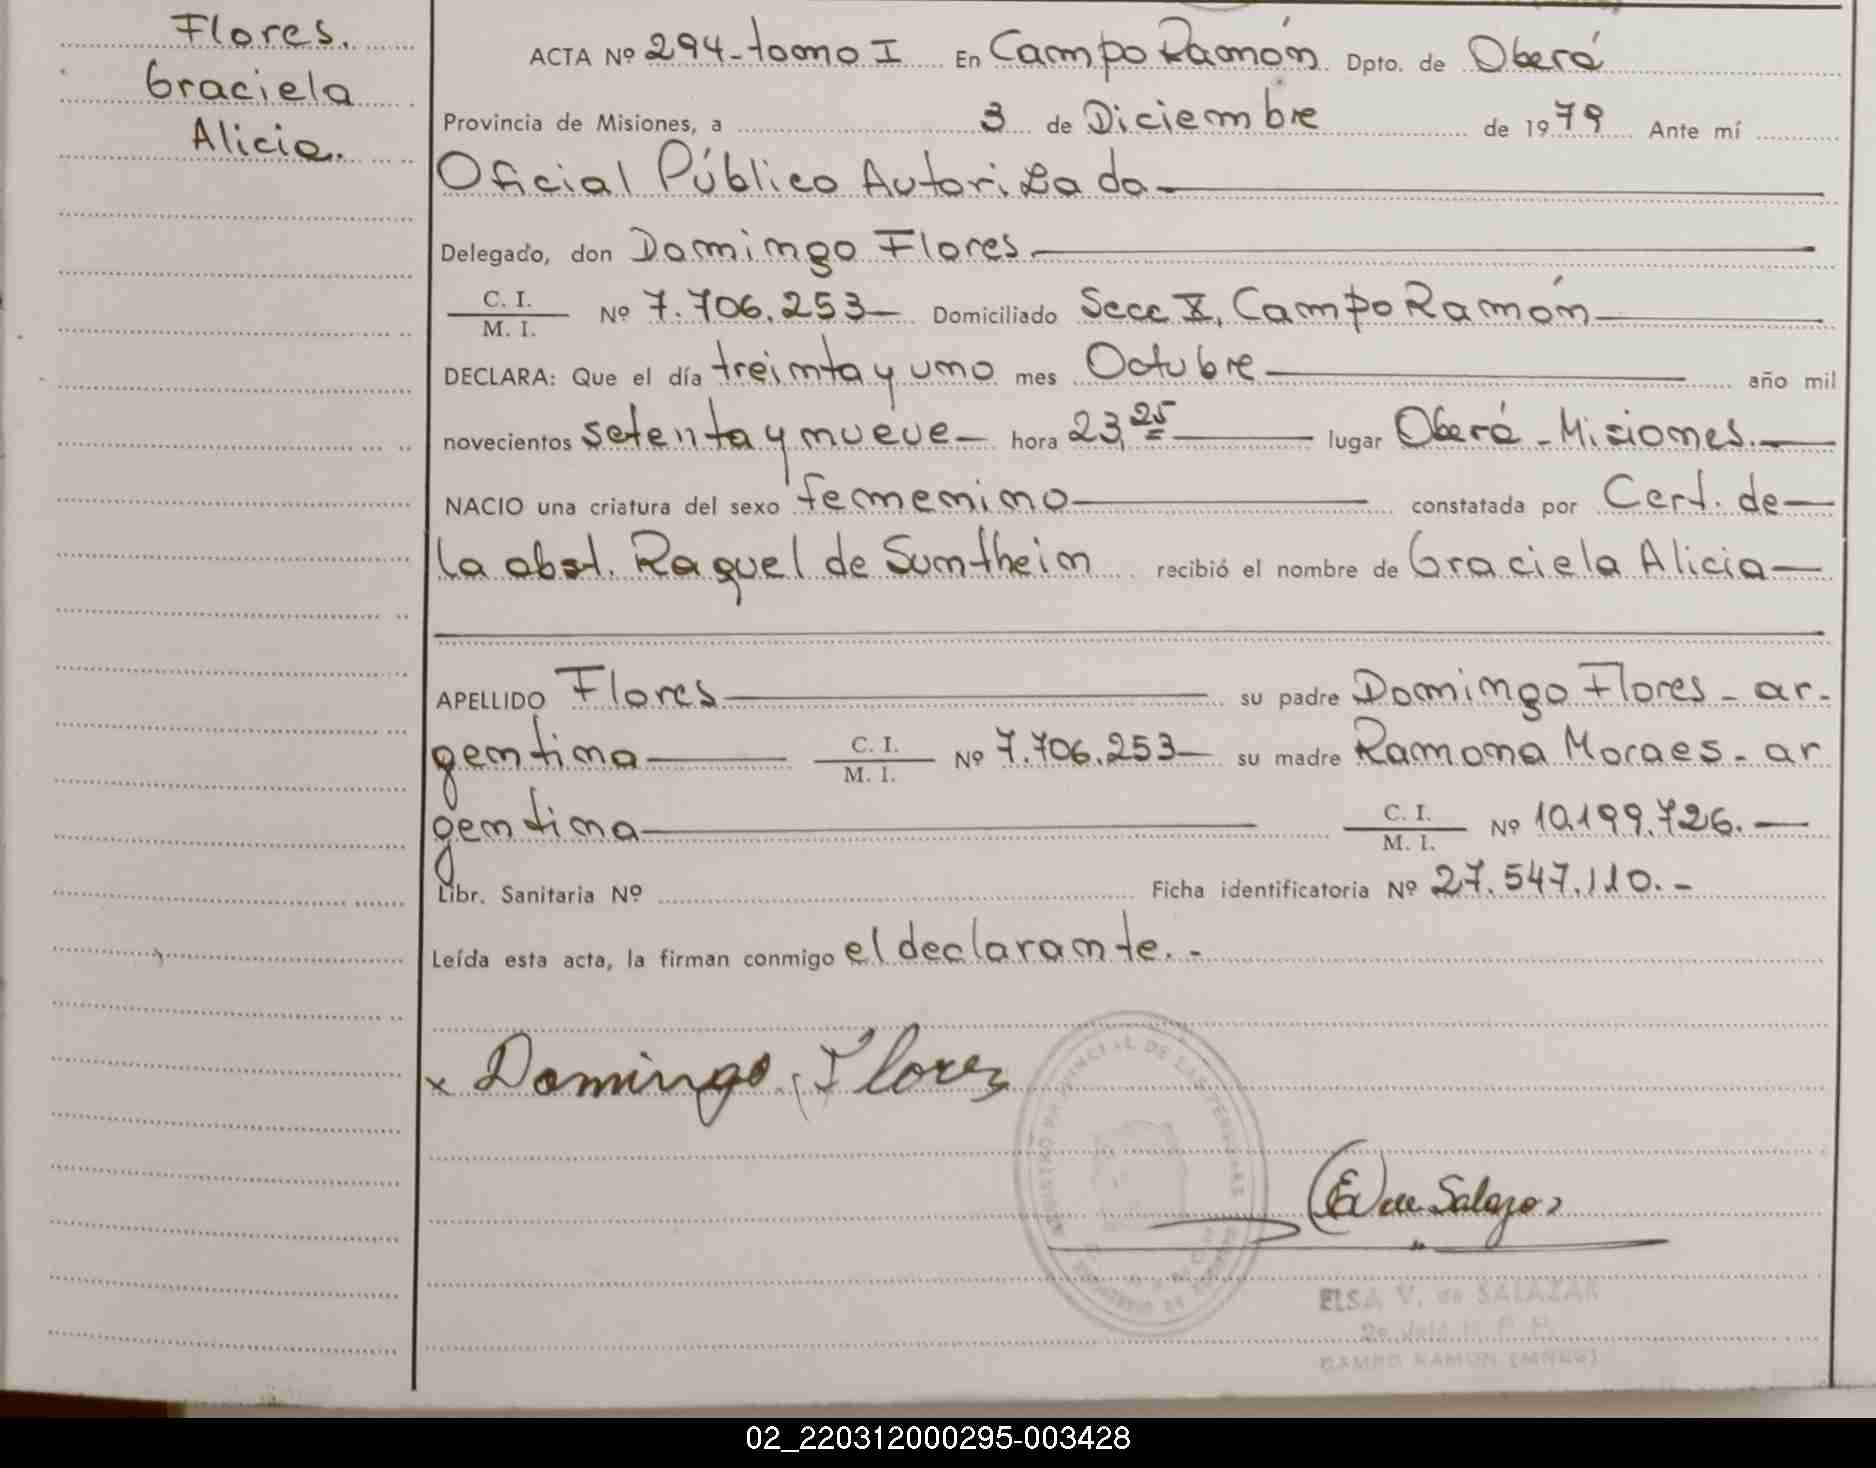 Flores.
Graciela
Alicia.
ACTA Nº 294-tomo I En Campo Ramón Dpto. de Oberá
Provincia de Misiones, a 3 de Diciembre de 1979 Ante mí
Oficial Público Autorizada
Delegado, don Domingo Flores
C. I.
M. I. Nº 7.706.253 Domiciliado Secc X, Campo Ramón
DECLARA: Que el día treinta y uno mes Octubre año mil
novecientos setenta y nueve hora 23,25 lugar Oberá - Misiones.
NACIO una criatura del sexo femenino constatada por Cert. de
la obst. Raquel de Sumtheim recibió el nombre de Graciela Alicia
APELLIDO Flores su padre Domingo Flores - ar-
gentina C. I. M. I. Nº 7.706.253 su madre Ramona Moraes - ar
gentina C. I. M. I. Nº 10.199.726.
Libr. Sanitaria Nº Ficha identificatoria Nº 27.547.110.-
Leída esta acta, la firman conmigo el declarante.-
x Domingo Flores
REGISTRO PROVINCIAL DE LAS PERSONAS
E V de Salazar
ELSA V. de SALAZAR
CAMPO RAMON (MNES)
02_220312000295-003428